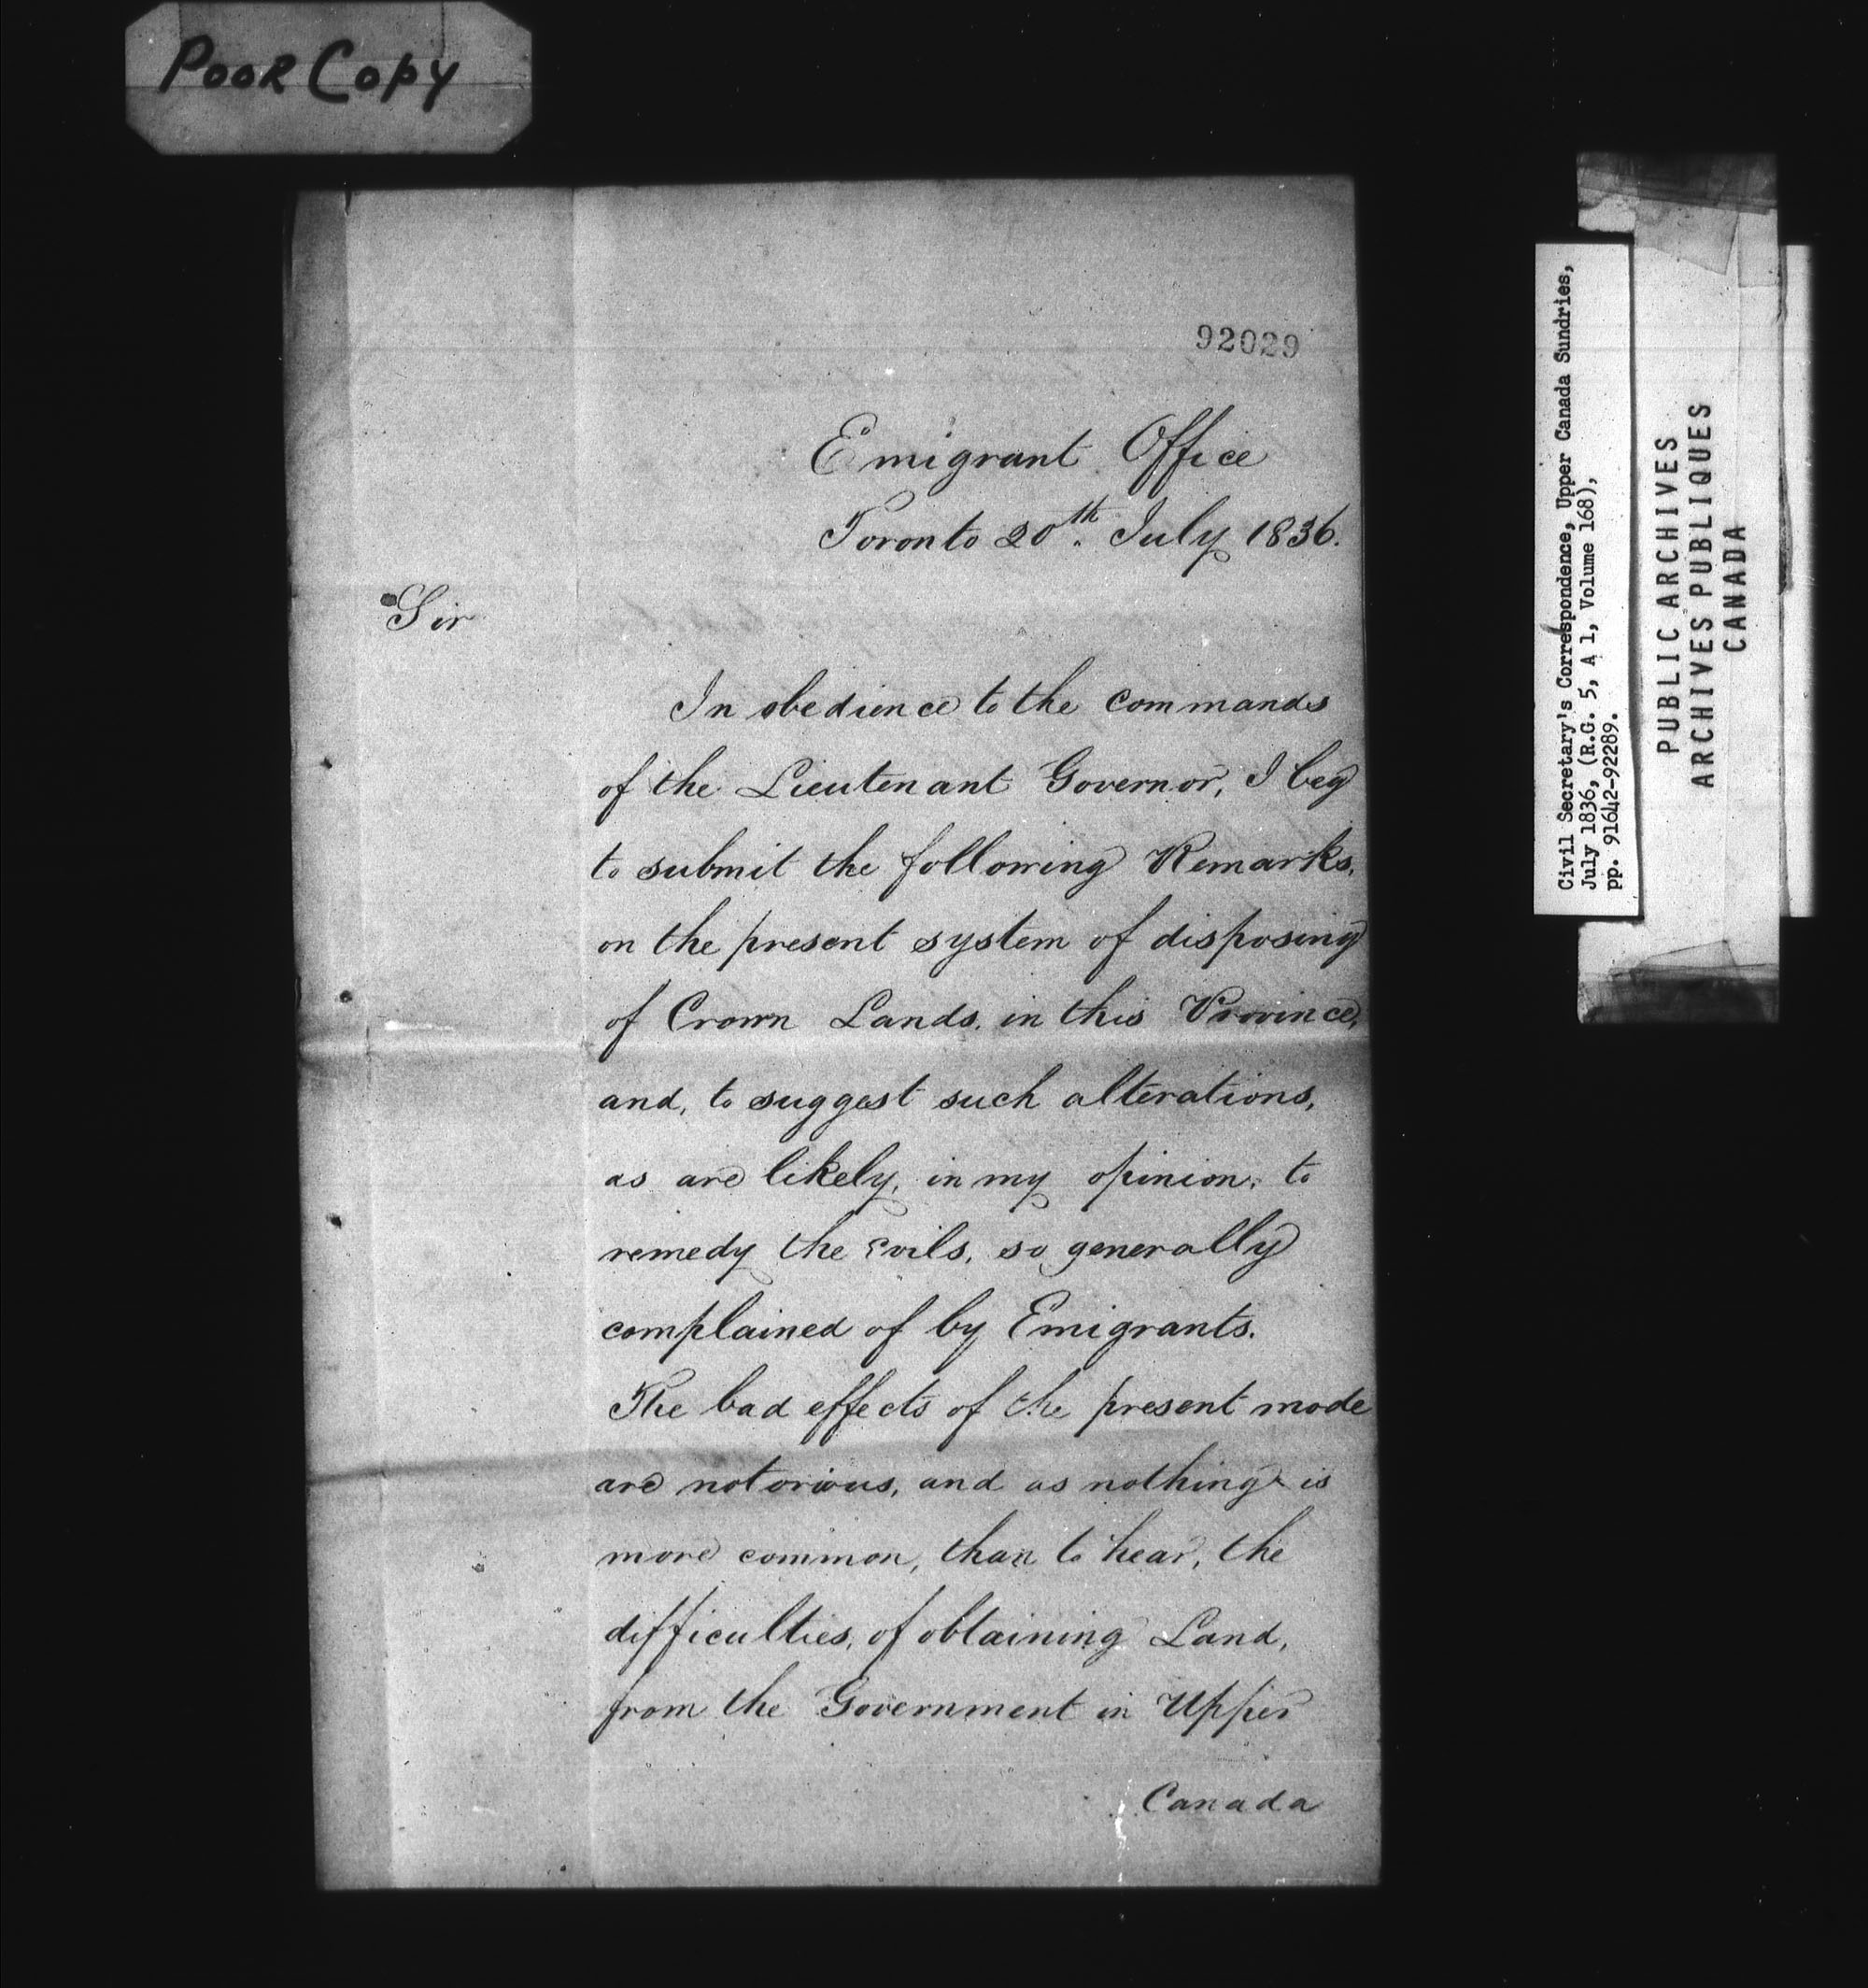 Poor Copy
92029
Emigrant Office
Toronto 20th. July 1836.
Sir
In obedience to the commands
of the Lieutenant Governor, I beg
to submit the following Remarks,
on the present system of disposing
of Crown Lands, in this Province,
and, to suggest such alterations,
as are likely, in my opinion, to
remedy the Evils, so generally
complained of by Emigrants.
The bad effects of the present mode
are notorious, and as nothing is
more common, than to hear, the
difficulties, of obtaining Land,
from the Government in Upper
Canada
Civil Secretary's Correspondence, Upper Canada Sundries,
July 1836, (R.G. 5, A 1, Volume 168),
pp. 91642-92289.
PUBLIC ARCHIVES
ARCHIVES PUBLIQUES
CANADA